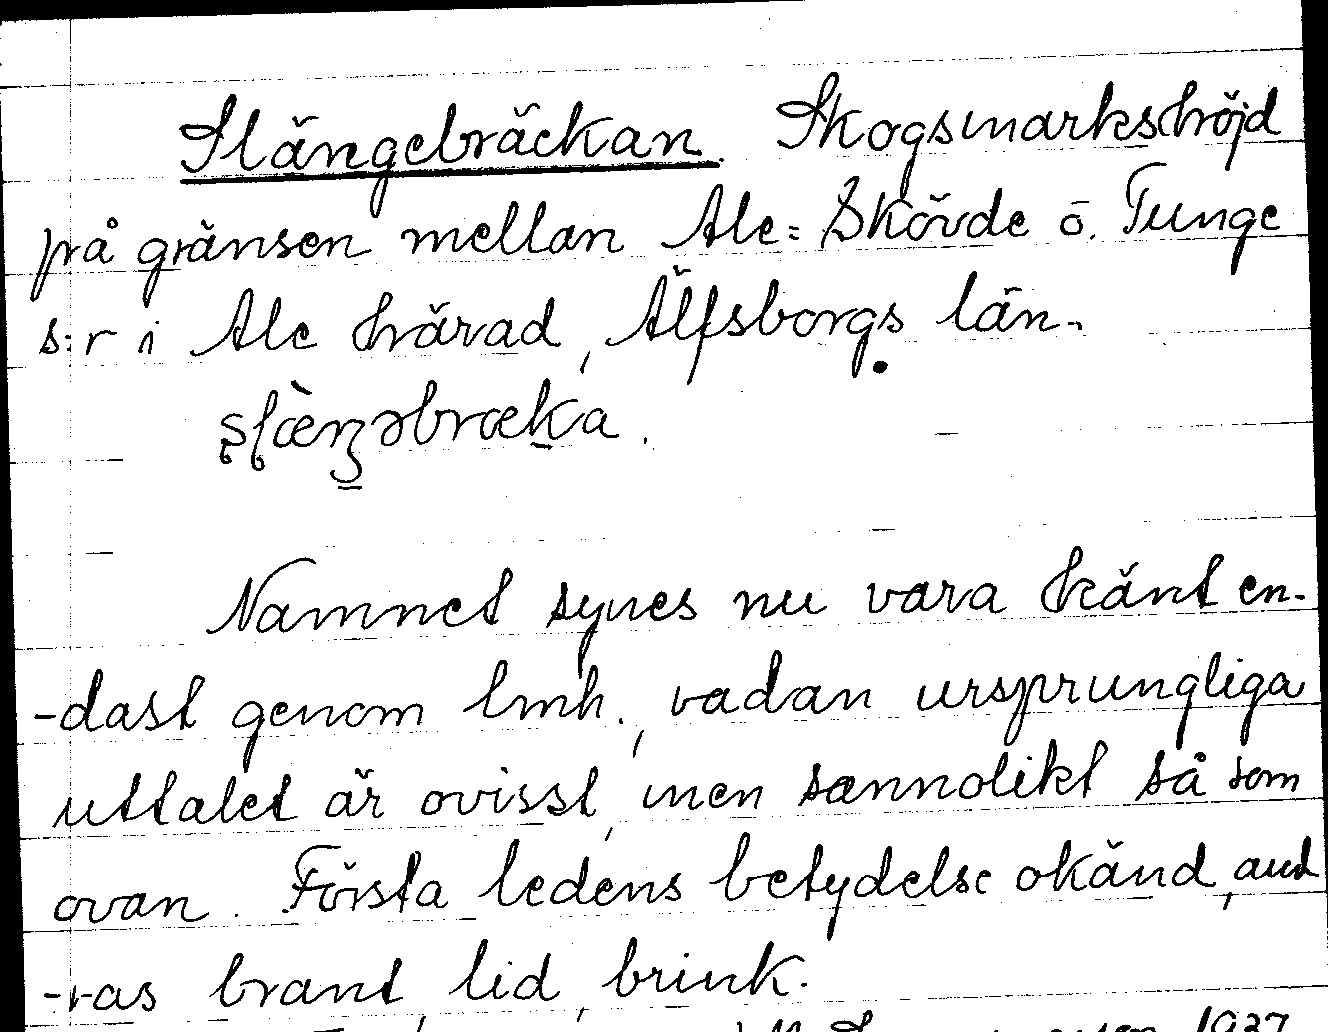 Slängebräckan. Skogsmarkshöjd
på gränsen mellan Ale-Skövde o. Tunge
s:r i Ale härad, Älfsborgs län.
Namnet synes nu vara känt en-
-dast genom lmh., vadan ursprungliga
uttalet är ovisst, men sannolikt så som
ovan. Första ledens betydelse okänd, and-
-ras brant, lid, brink.
1937